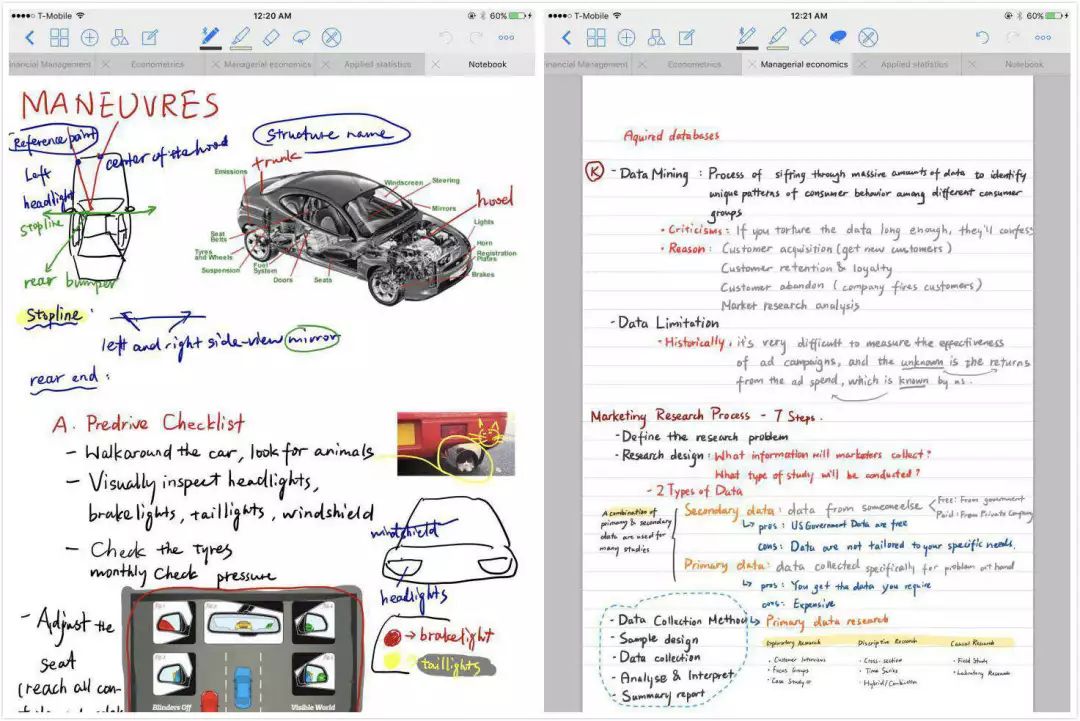 T-Mobile 12:20 AM 60%
inancial Management Econometrics Managerial economics Applied statistics Notebook
MANEUVRES
Reference point
center of the hood
Left
headlight
Stopline
rear bumper
Structure name
trunk
hood
Emissions
Windscreen
Steering
Mirrors
Lights
Horn
Registration
Plates
Brakes
Seat
Belts
Tyres
and Wheels
Suspension
Fuel
System
Doors
Seats
Stopline :
left and right side-view mirror
rear end :
A. Predrive Checklist
- Walkaround the car, look for animals
- Visually inspect headlights,
brakelights, taillights, windshield
- Check the tyres
monthly check pressure
windshield
headlights
→ brakelight
taillights
- Adjust the
seat
(reach all con-
Blinders Off
Visible World
T-Mobile 12:21 AM 60%
inancial Management Econometrics Managerial economics Applied statistics Notebook
Aquired databases
K - Data Mining : Process of sifring through massive amounts of data to identify
unique patterns of consumer behavior among different consumer
groups
• Criticisms : If you torture the data long enough, they'll confess
• Reason : Customer acquisition (get new customers)
Customer retention & loyalty
Customer abandon (company fires customers)
Market research analysis
- Data Limitation
• Historically, it's very difficult to measure the effectiveness
of ad campaigns, and the unknown is the returns
from the ad spend, which is known by us.
Marketing Research Process - 7 Steps.
- Define the research problem
- Research design : What information will marketers collect?
What type of study will be conducted?
- 2 Types of Data
A combination of
primary & secondary
data are used for
many studies
Secondary data : data from someoneelse
Free : From government
Paid : From Private Company
↳ pros : US Government Data are free
cons : Data are not tailored to your specific needs.
Primary data : data collected specifically for problem at hand
↳ pros : You get the data you require
cons : Expensive
- Data Collection Method ↳ Primary data research
- Sample design
- Data collection
- Analyse & Interpret
- Summary report
Exploratory Research Discriptive Research Causal Research
• Customer Interviews • Cross-section • Field Study
• Focus Groups • Time Series • Laboratory Research
• Case Study • Hybrid/Combination